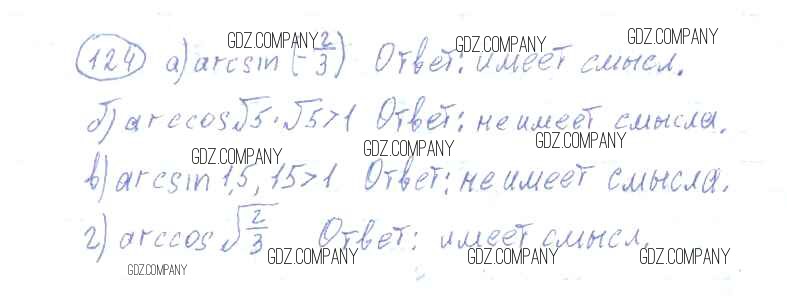 124 а) arcsin (-2/3) Ответ: имеет смысл.
б) arccos √5. √5>1 Ответ: не имеет смысла.
в) arcsin 1,5, 1,5>1 Ответ: не имеет смысла.
г) arccos √2/3 Ответ: имеет смысл.
GDZ.COMPANY GDZ.COMPANY GDZ.COMPANY
GDZ.COMPANY GDZ.COMPANY GDZ.COMPANY
GDZ.COMPANY GDZ.COMPANY GDZ.COMPANY GDZ.COMPANY